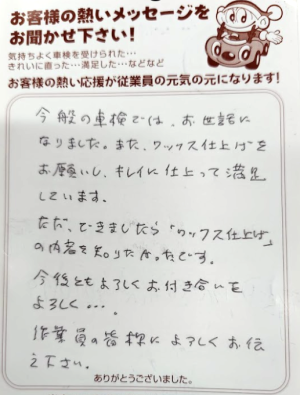 お客様の熱いメッセージを
お聞かせ下さい!
気持ちよく車検を受けられた…
きれいに直った…満足した…などなど
お客様の熱い応援が従業員の元気の元になります!
今般の車検では、お世話に
なりました。また、ワックス仕上げを
お願いし、キレイに仕上って満足
しています。
ただ、できましたら「ワックス仕上げ」
の内容を知りたかったです。
今後ともよろしくお付き合いを
よろしく・・・。
作業員の皆様によろしくお伝
え下さい。
ありがとうございました。